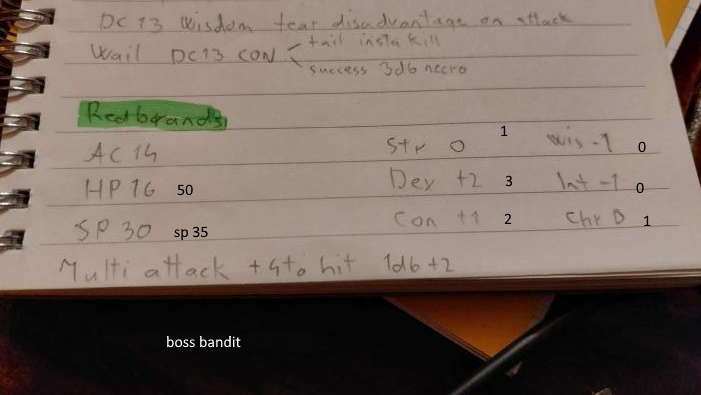 DC 13 Wisdom fear disadvantage on attack
Wail DC13 CON fail insta kill
success 3d6 necro
Redbrands
AC 14 Str 0 1 Wis -1 0
HP 16 50 Dex +2 3 Int -1 0
SP 30 sp 35 Con +1 2 Chr 0 1
Multi attack +4 to hit 1d6+2
boss bandit